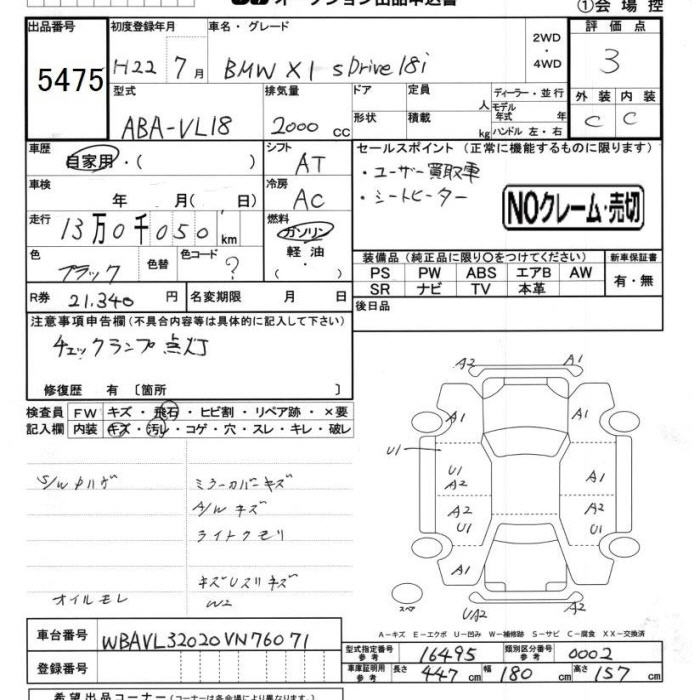 オークション出品申込書
①会場控
出品番号 初度登録年月 車名・グレード 2WD・4WD 評価点
5475 H22 7月 BMW X1 sDrive18i 3
型式 排気量 ドア 定員 人 ディーラー・並行 外装 内装
ABA-VL18 2000cc 形状 積載 kg モデル年式 年 ハンドル 左・右 C C
車歴 自家用・( ) シフト AT セールスポイント(正常に機能するものに限ります)
・ユーザー買取車
車検 年 月( 日) 冷房 AC ・シートヒーター
NOクレーム・売切
走行 13万0千050km 燃料 ガソリン 軽油 ・( )
色 ブラック 色替 色コード ? 装備品(純正品に限り〇をつけてください) 新車保証書
PS PW ABS エアB AW 有・無
SR ナビ TV 本革
R券 21,340円 名変期限 月 日 後日品
注意事項申告欄(不具合内容等は具体的に記入して下さい)
チェックランプ点灯
修復歴 有 〔箇所 〕
検査員 FW キズ・飛石・ヒビ割・リペア跡・×要
記入欄 内装 キズ・汚レ・コゲ・穴・スレ・キレ・破レ
A2 A1
A1 A1
U1
U1 A2 A1
A2 U1 A2 U1
A1 A1
スペア UA2
ミラーカバーキズ
A/Wキズ
ライトクモリ
オイルモレ W2
A−キズ E−エクボ U−凹み W−補修跡 S−サビ C−腐食 XX−交換済
車台番号 WBAVL32020VN76071
型式指定番号 参考 16495 類別区分番号 参考 0002
登録番号 車庫証明用 参考 長さ 447cm 幅 180cm 高さ 157cm
希望出品コーナー(コーナーは各会場により異なります)